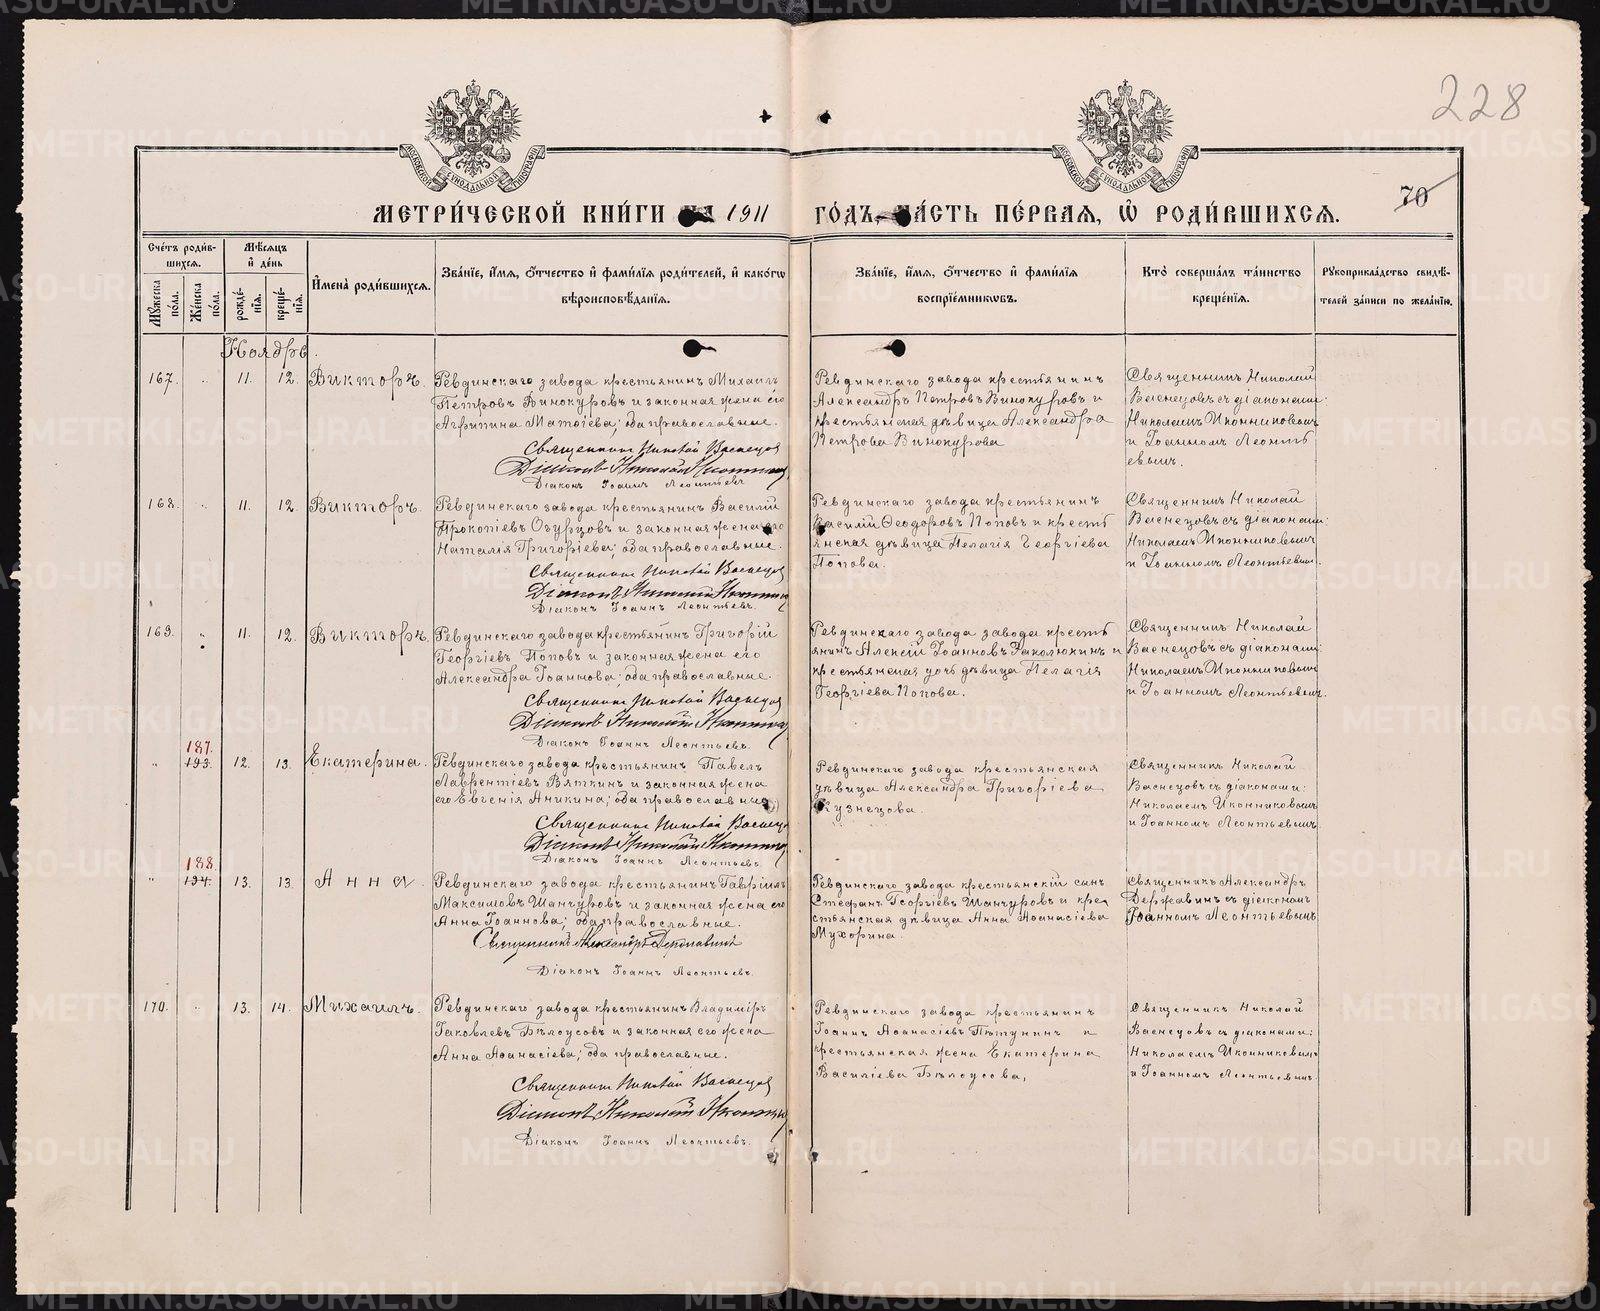 228
70
МОСКОВСКОЙ СѴНОДАЛЬНОЙ ТИПОГРАФІИ
МОСКОВСКОЙ СѴНОДАЛЬНОЙ ТИПОГРАФІИ
МЕТРИ́ЧЕСКОЙ КНИ́ГИ НА 1911 ГО́ДЪ, ЧА́СТЬ ПЕ́РВАЯ, Ѿ РОДИ́ВШИХСЯ.
Сче́тъ роди́вшихся.
Мѣ́сяцъ и҆ де́нь
Мꙋ́жеска по́ла.
Же́нска по́ла.
рожде́нїя.
креще́нїя.
И҆мена̀ роди́вшихся.
Зва́нїе, и҆́мя, ѻ҆́тчество и҆ фами́лїя роди́телей, и҆ како́гѡ вѣроисповѣ́данїя.
Зва́нїе, и҆́мя, ѻ҆́тчество и҆ фами́лїя воспрїе́мникѡвъ.
Кто̀ соверша́лъ та́инство креще́нїя.
Рꙋкоприкла́дство свидѣ́телей за́писи по жела́нїю.
Ноябрь.
167. " 11. 12. Викторъ.
Ревдинскаго завода крестьянинъ Михаилъ
Петровъ Винокуровъ и законная жена его
Агрипина Матѳіева; оба православные.
Священникъ Николай Васнецовъ
Діаконъ Николай Иконниковъ
Діаконъ Іоаннъ Леонтьевъ
Ревдинскаго завода крестьянинъ
Александръ Петровъ Винокуровъ и
крестьянская дѣвица Александра
Петрова Винокурова
Священникъ Николай
Васнецовъ съ діаконами:
Николаемъ Иконниковымъ
и Іоанномъ Леонть
евымъ.
168. " 11. 12. Викторъ.
Ревдинскаго завода крестьянинъ Василій
Прокопіевъ Огурцовъ и законная жена его
Наталія Григоріева; оба православные.
Священникъ Николай Васнецовъ
Діаконъ Николай Иконниковъ
Діаконъ Іоаннъ Леонтьевъ.
Ревдинскаго завода крестьянинъ
Василій Ѳеодоровъ Поповъ и кресть
янская дѣвица Пелагія Георгіева
Попова.
Священникъ Николай
Васнецовъ съ діаконами:
Николаемъ Иконниковымъ
и Іоанномъ Леонтьевым.
169. " 11. 12. Викторъ.
Ревдинскаго завода крестьянинъ Григорій
Георгіевъ Поповъ и законная жена его
Александра Іоаннова; оба православные.
Священникъ Николай Васнецовъ
Діаконъ Николай Иконниковъ
Діаконъ Іоаннъ Леонтьевъ.
Ревдинскаго завода завода кресть
янинъ Алексій Іоанновъ Заколюкинъ и
крестьянская дочь дѣвица Пелагія
Георгіева Попова.
Священникъ Николай
Васнецовъ съ діаконами:
Николаемъ Иконниковымъ
и Іоанномъ Леонтьевымъ.
187.
" 193. 12. 13. Екатерина.
Ревдинскаго завода крестьянинъ Павелъ
Лаврентіевъ Вяткинъ и законная жена
его Евгенія Аникина; оба православные
Священникъ Николай Васнецовъ
Діаконъ Николай Иконниковъ
Діаконъ Іоаннъ Леонтьевъ.
Ревдинскаго завода крестьянская
дѣвица Александра Григоріева
Кузнецова.
Священникъ Николай
Васнецовъ съ діаконами:
Николаемъ Иконниковымъ
и Іоанномъ Леонтьевымъ.
188.
" 194. 13. 13. Анна.
Ревдинскаго завода крестьянинъ Гавріилъ
Максимовъ Шанчуровъ и законная жена его
Анна Іоаннова; оба православные.
Священникъ Александръ Державинъ
Діаконъ Іоаннъ Леонтьевъ.
Ревдинскаго завода крестьянскій сынъ
Стефанъ Георгіевъ Шанчуровъ и кре
стьянская дѣвица Анна Аѳанасіева
Мухорина.
Священникъ Александръ
Державинъ съ діакономъ
Іоанномъ Леонтьевымъ
170. " 13. 14. Михаилъ.
Ревдинскаго завода крестьянинъ Владиміръ
Іаковлевъ Бѣлоусовъ и законная его жена
Анна Аѳанасіева; оба православные.
Священникъ Николай Васнецовъ
Діаконъ Николай Иконниковъ
Діаконъ Іоаннъ Леонтьевъ.
Ревдинскаго завода крестьянинъ
Іоаннъ Аѳанасіевъ Пѣтунинъ и
крестьянская жена Екатерина
Василіева Бѣлоусова.
Священникъ Николай
Васнецовъ съ діаконами:
Николаемъ Иконниковымъ
и Іоанномъ Леонтьевымъ
METRIKI.GASO-URAL.RU